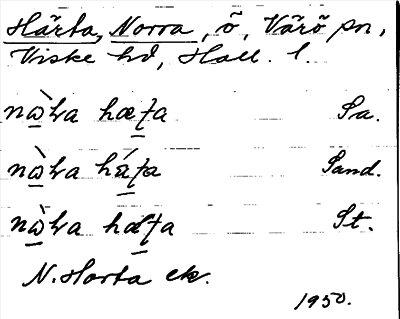 Härta, Norra, ö, Värö sn,
Viske hd, Hall. l.
nàra hæʈa Sa.
nàra háʈa Sand.
nàra hæʈa St.
N. Horta ek.
1950.